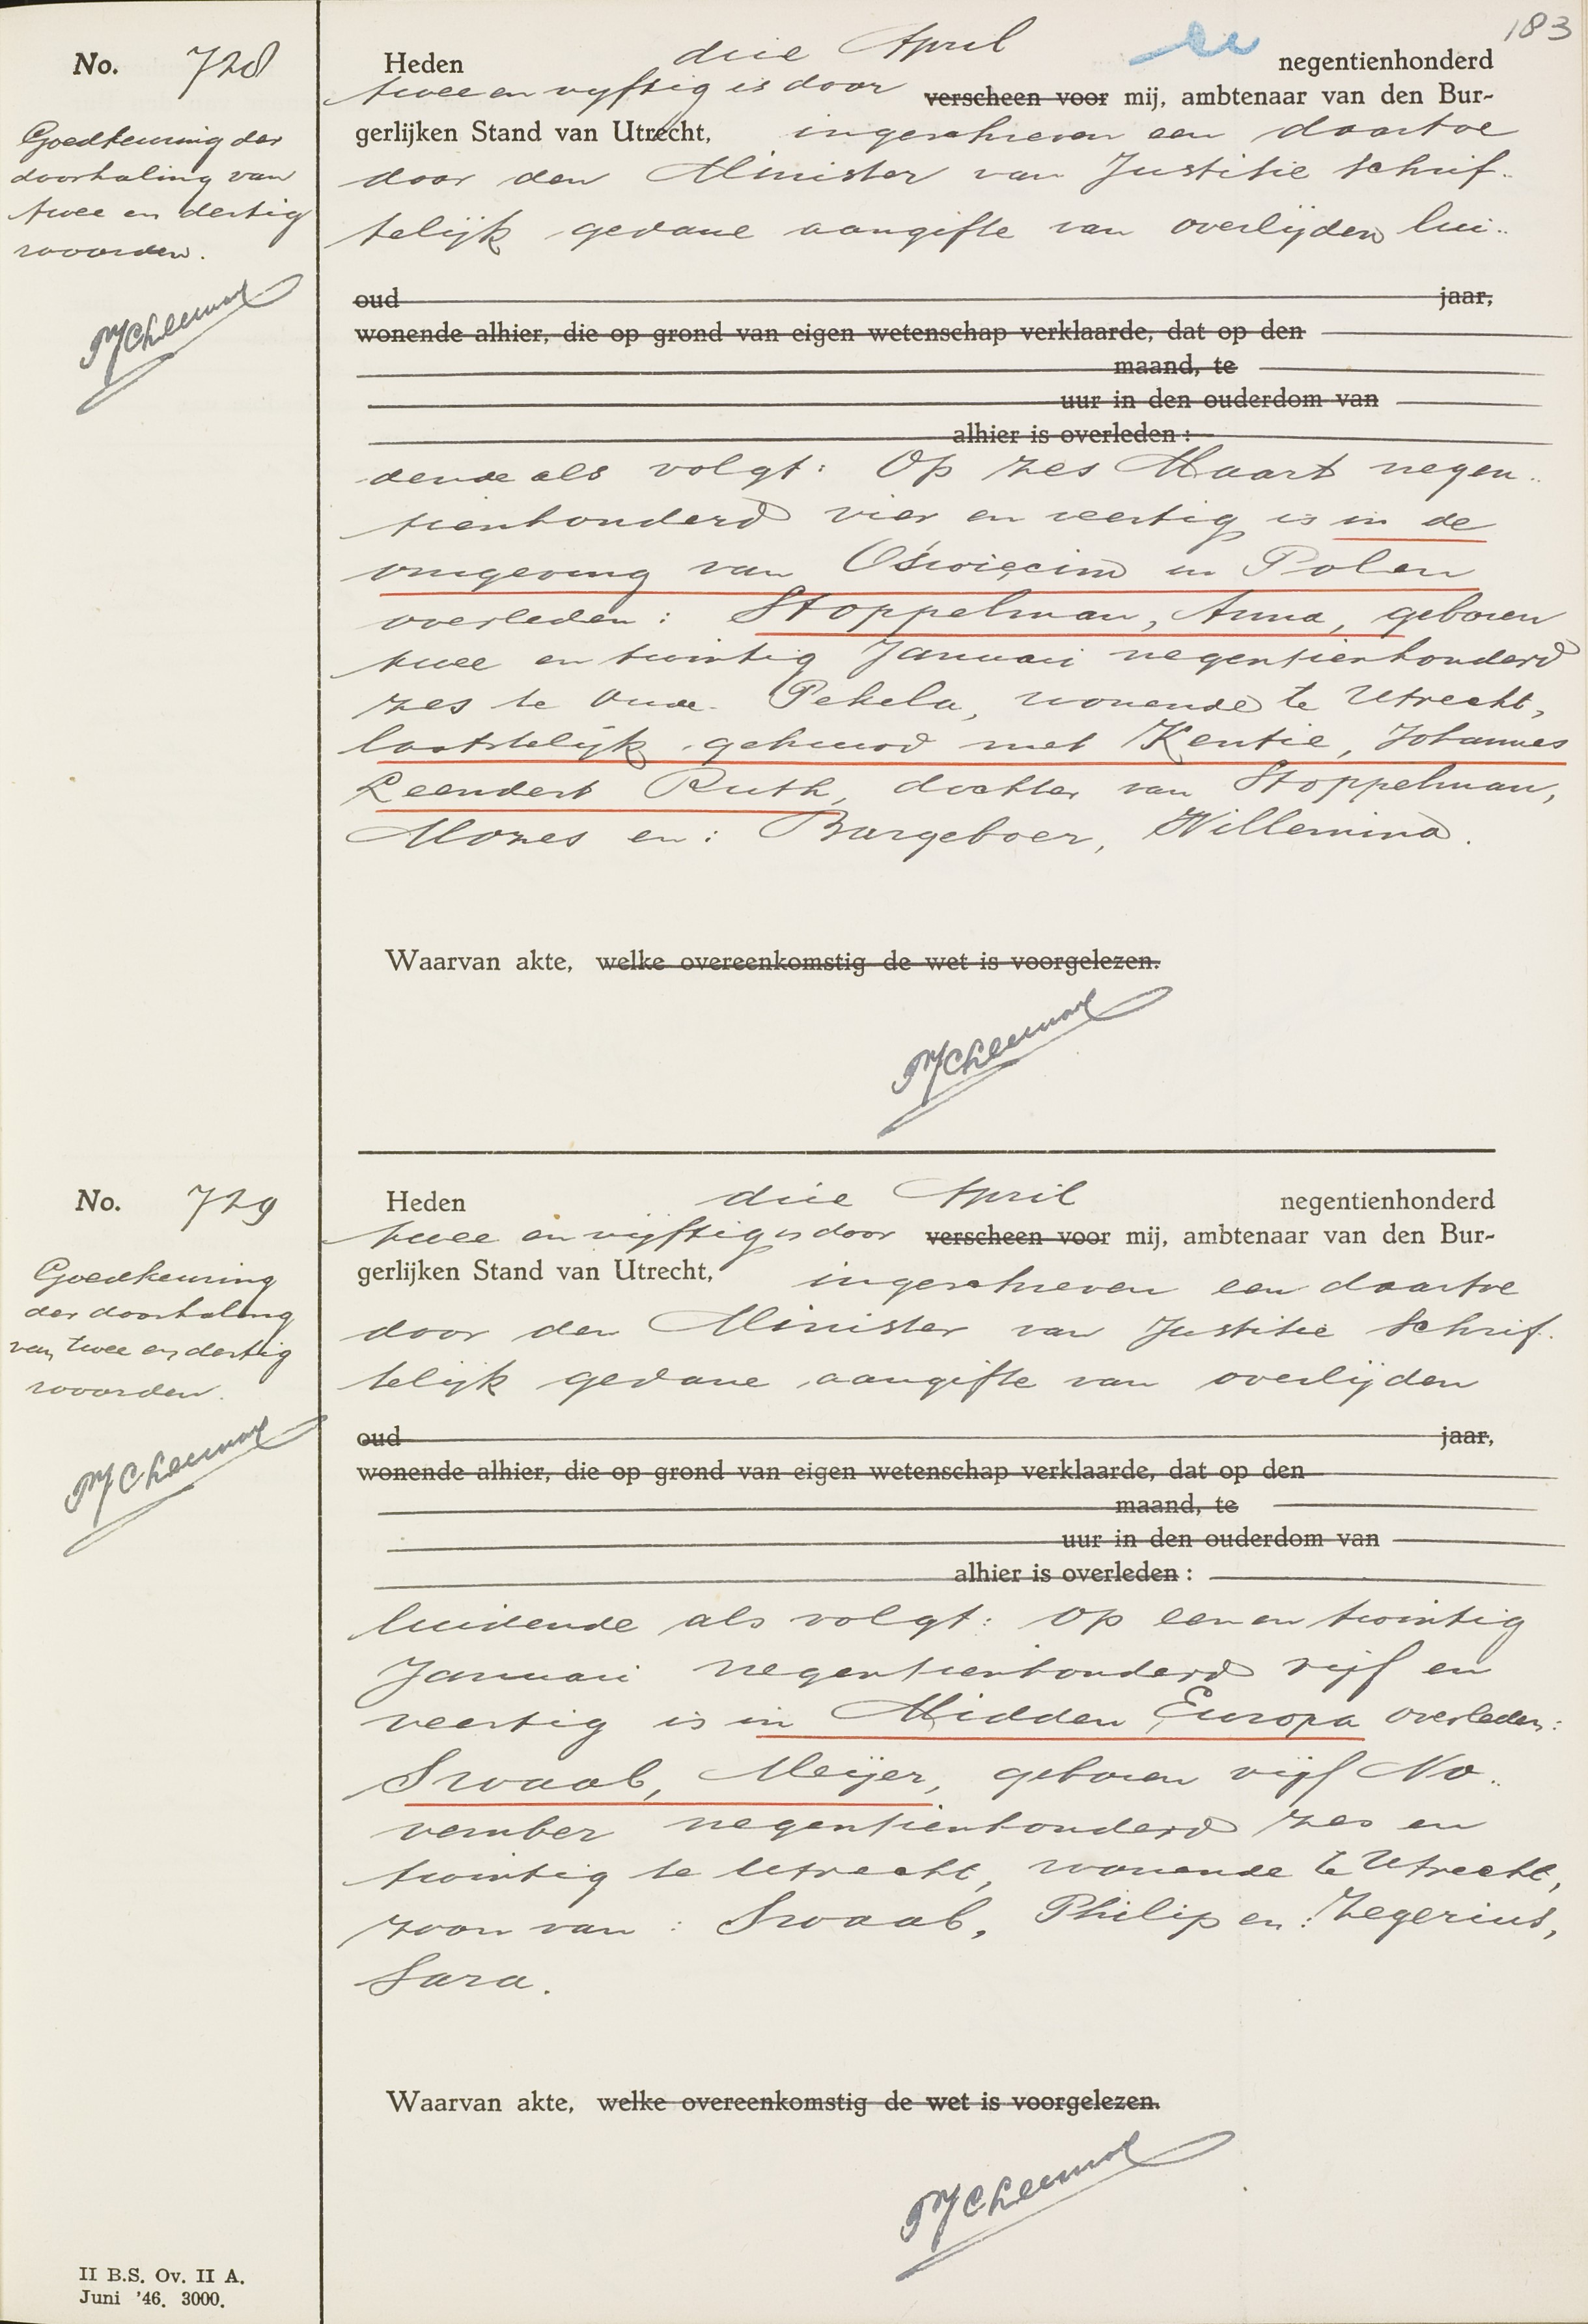 183
No. 728
Goedkeuring der
doorhaling van
twee en dertig
woorden.
Heden drie April negentienhonderd
twee en vyftig is door verscheen voor mij, ambtenaar van den Bur-
gerlijken Stand van Utrecht, ingeschreven een daartoe
door den Minister van Justitie schrif..
telijk gedane aangifte van overlijden lui..
oud jaar,
wonende alhier, die op grond van eigen wetenschap verklaarde, dat op den
maand, te
uur in den ouderdom van
alhier is overleden :
dende als volgt: Op zes Maart negen..
tienhonderd vier en veertig is in de
omgeving van Oświęcim in Polen
overleden: Stoppelman, Anna, geboren
twee en twintig Januari negentienhonderd
zes te Oude Pekela, wonende te Utrecht,
laatstelijk gehuwd met Kentie, Johannes
Leendert Ruth, dochter van Stoppelman,
Mozes en: Burgeboer, Willemina.
Waarvan akte, welke overeenkomstig de wet is voorgelezen.
No. 729
Goedkeuring
der doorhaling
van twee en dertig
woorden.
Heden drie April negentienhonderd
twee en vijftig is door verscheen voor mij, ambtenaar van den Bur-
gerlijken Stand van Utrecht, ingeschreven een daartoe
door den Minister van Justitie schrif..
telijk gedane aangifte van overlijden
oud jaar,
wonende alhier, die op grond van eigen wetenschap verklaarde, dat op den
maand, te
uur in den ouderdom van
alhier is overleden :
luidende als volgt: Op een en twintig
Januari negentienhonderd vijf en
veertig is in Midden Europa overleden:
Swaab, Meijer, geboren vijf No..
vember negentienhonderd zes en
twintig te Utrecht, wonende te Utrecht,
zoon van: Swaab, Philip en: Zegerius,
Sara.
Waarvan akte, welke overeenkomstig de wet is voorgelezen.
II B.S. Ov. II A.
Juni '46. 3000.